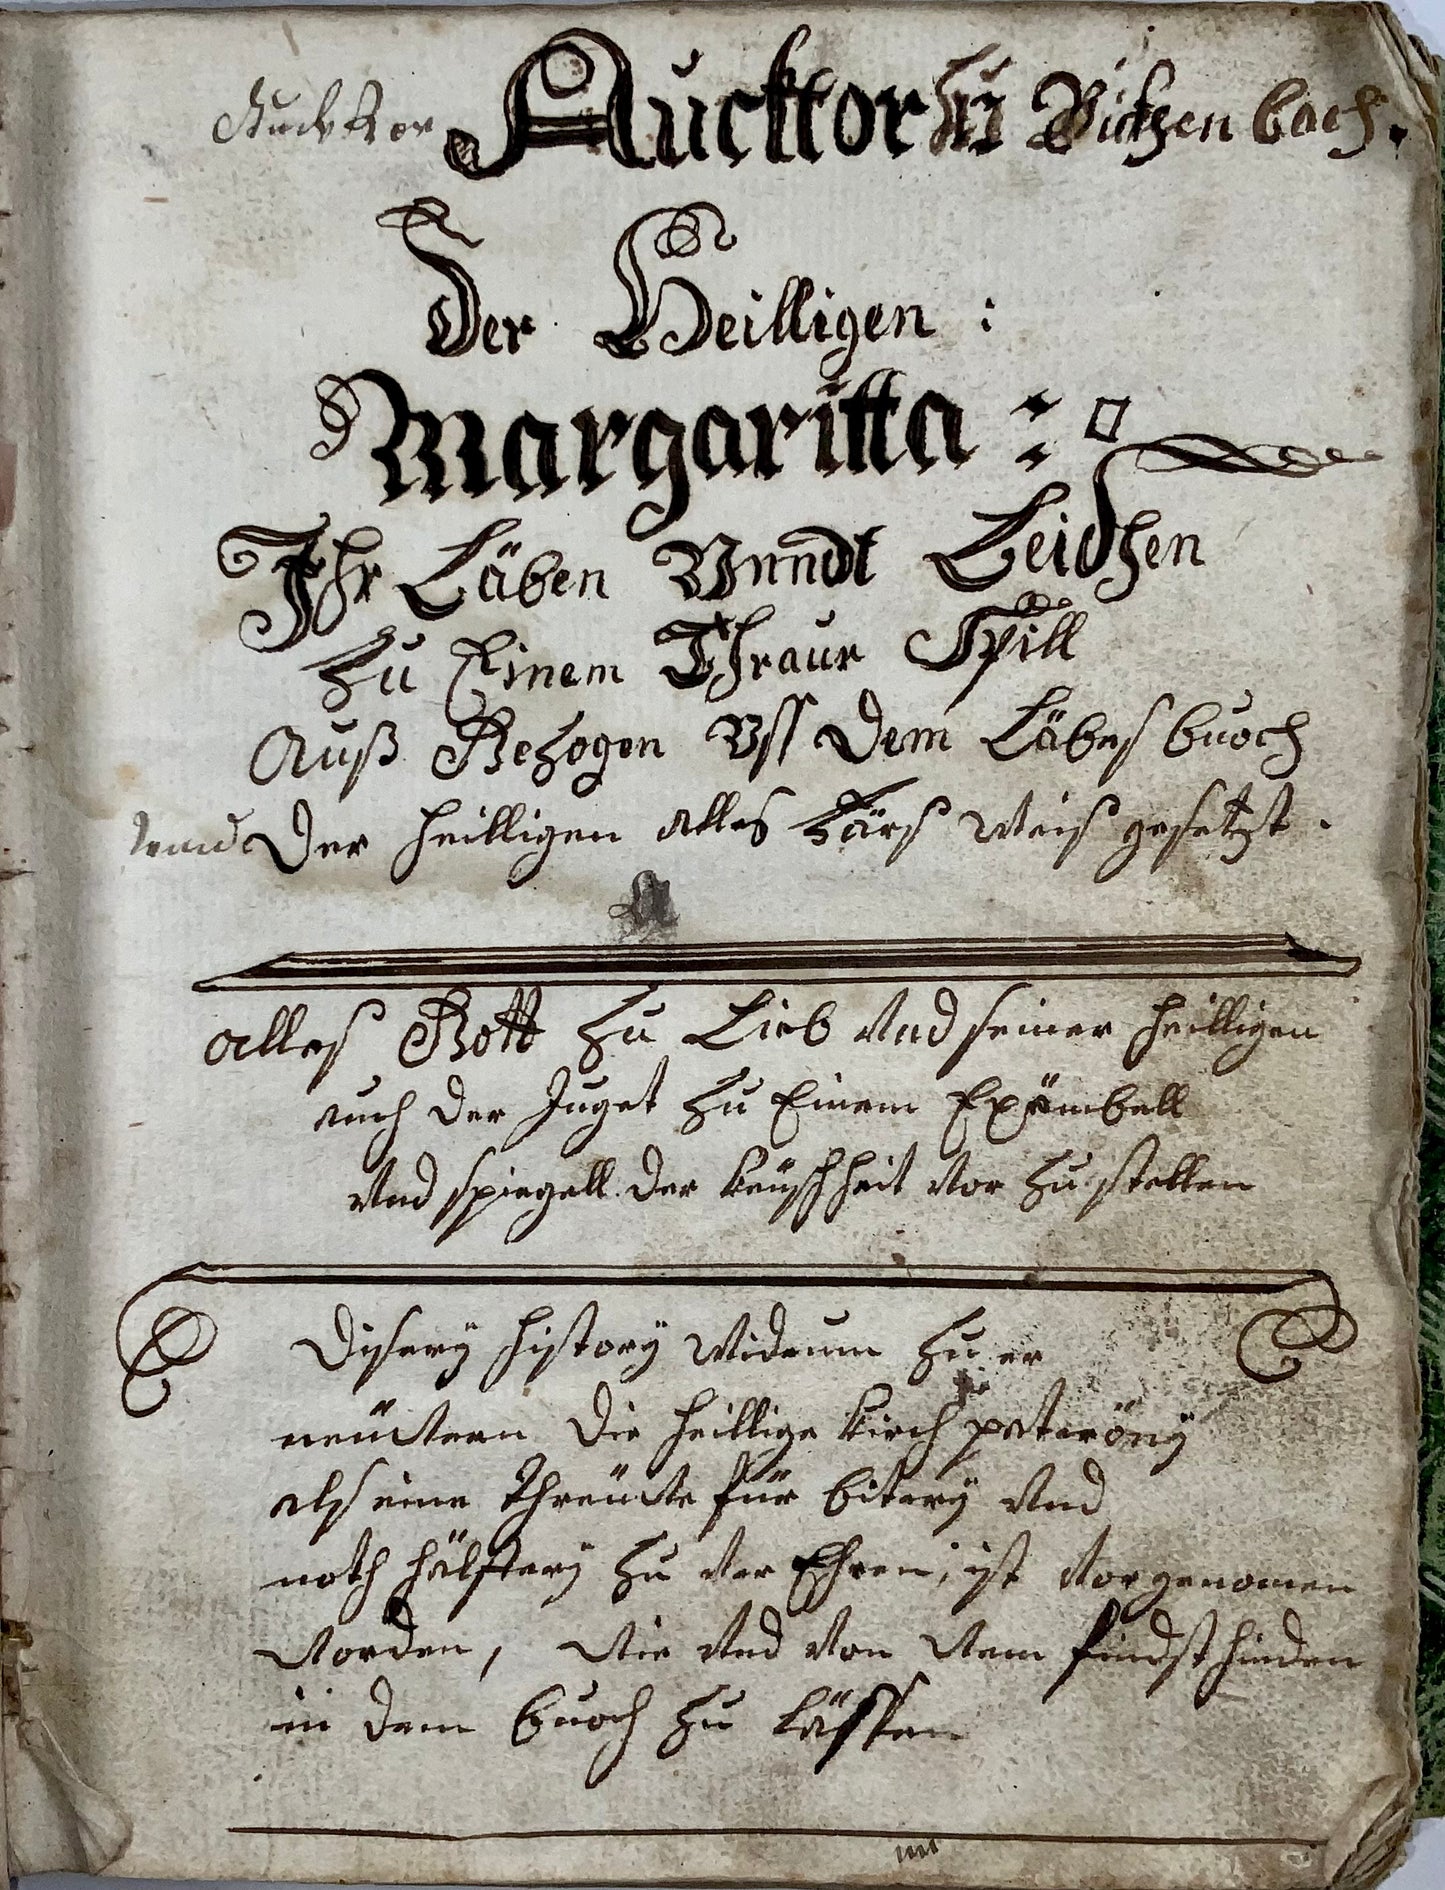 Auckttor Auckttor zu Bichsen bach.
Der Heilligen :
Margaritta :
Ihr Läben Vnndt Leidhen
Zu Einem Thraur Spill
Auß Gezogen Vss Dem Läbes buoch
Der heilligen alles Värs Weis gesetzt .
alles Gott zu Lieb Vnd seiner heilligen
auch Der Juget zu Einem Exämbell
Vnd spiegell der keüschheit Vor zu stellen
Disery history Widrum zu er
neüweren Die heillige kirch pateröny
als eine threüwe für bitery Vnd
noth hälffery zu ver Ehren, ist Vorgenomen
worden, wie Vnd Von wem findst hinden
in dem buoch zu lässen